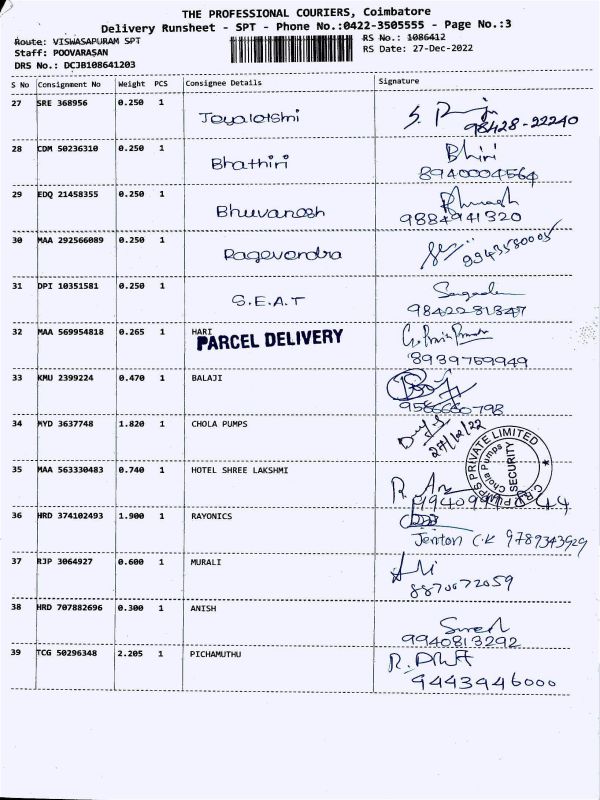 THE PROFESSIONAL COURIERS, Coimbatore
Delivery Runsheet - SPT - Phone No.:0422-3505555 - Page No.:3
Route: VISWASAPURAM SPT
RS No.: 1086412
Staff: POOVARASAN
RS Date: 27-Dec-2022
DRS No.: DCJB108641203
S No Consignment No Weight PCS Consignee Details Signature
27 SRE 368956 0.250 1
98428-22240
28 CDM 50236310 0.250 1 Bhathiri Bhiri
8940004564
29 EDQ 21458355 0.250 1 Bhuvanesh
9884941320
30 MAA 292566089 0.250 1 Ragevendra
9943580005
31 DPI 10351581 0.250 1 S.E.A.T
9842231347
32 MAA 569954818 0.265 1 HARI
PARCEL DELIVERY
8939759949
33 KMU 2399224 0.470 1 BALAJI
9586660798
34 MYD 3637748 1.820 1 CHOLA PUMPS
27/12/22
C.R.I PUMPS PRIVATE LIMITED
Chola Pumps
SECURITY
35 MAA 563330483 0.740 1 HOTEL SHREE LAKSHMI
36 HRD 374102493 1.900 1 RAYONICS
Jenton C.K 9789343929
37 RJP 3064927 0.600 1 MURALI
8870072059
38 HRD 707882696 0.300 1 ANISH
9940813292
39 TCG 50296348 2.205 1 PICHAMUTHU
9443946000